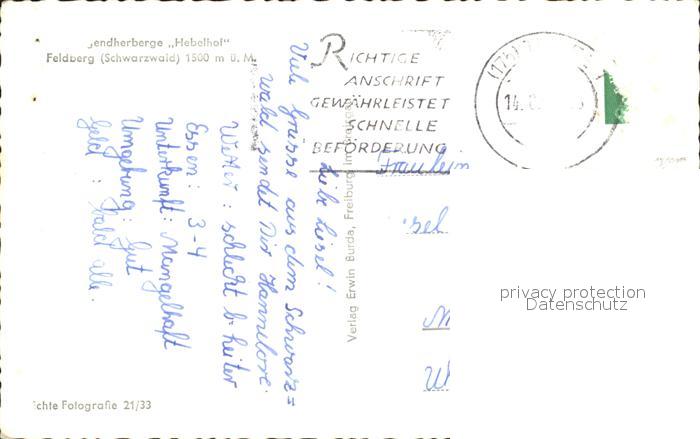 endherberge „Hebelhof"
Feldberg (Schwarzwald) 1500 m ü. M.
RICHTIGE
ANSCHRIFT
GEWÄHRLEISTET
SCHNELLE
BEFÖRDERUNG
Liebe Liesel!
Viele Grüsse aus dem Schwarz=
wald sendet Dir Hannelore.
Wetter: schlecht b. heiter
Essen: 3-4
Unterkunft: Mangelhaft
Umgebung: Gut
Geld: Bald alle.
Verlag Erwin Burda, Freiburg im
Fräulein
sel
M
W
privacy protection
Datenschutz
chte Fotografie 21/33